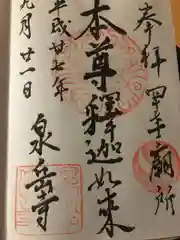 奉拝 廟所
本尊釋迦如来
平成廿七年
九月廿一日
泉岳寺